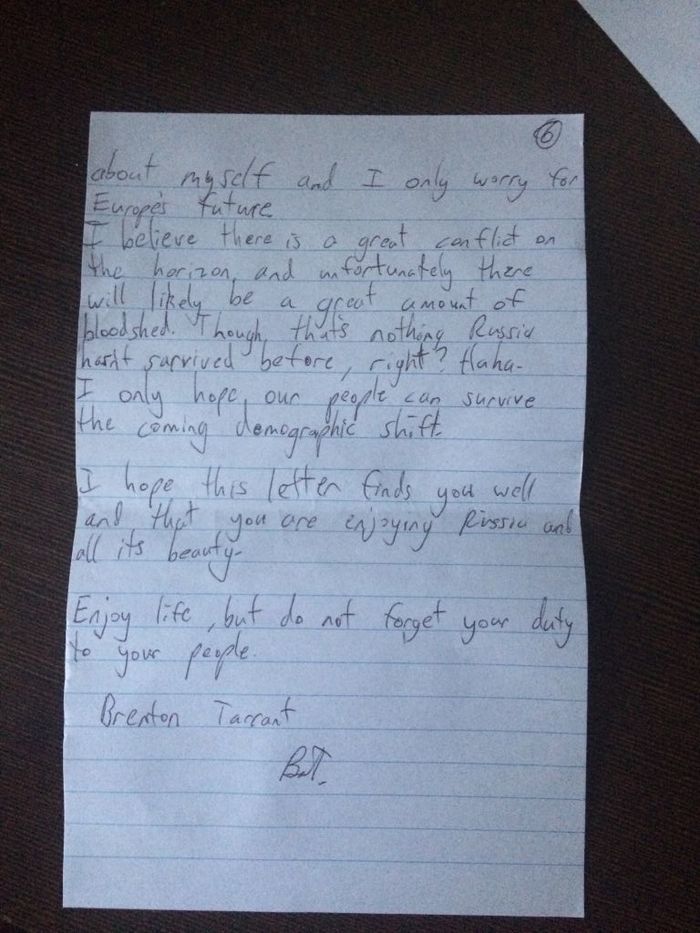 6
about myself and I only worry for
Europe's future
I believe there is a great conflict on
the horizon, and unfortunately there
will likely be a great amount of
bloodshed. Though, that's nothing Russia
hasn't survived before, right? Haha.
I only hope, our people can survive
the coming demographic shift.
I hope this letter finds you well
and that you are enjoying Russia and
all its beauty.
Enjoy life, but do not forget your duty
to your people.
Brenton Tarrant